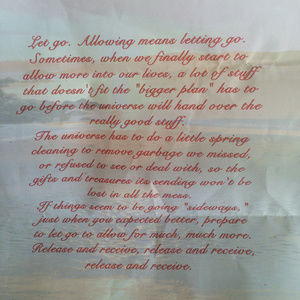 Let go. Allowing means letting go.
Sometimes, when we finally start to
allow more into our lives, a lot of stuff
that doesn't fit the "bigger plan" has to
go before the universe will hand over the
really good stuff.
The universe has to do a little spring
cleaning to remove garbage we missed,
or refused to see or deal with, so the
gifts and treasures its sending won't be
lost in all the mess.
If things seem to be going "sideways,"
just when you expected better, prepare
to let go to allow for much, much more.
Release and receive, release and receive,
release and receive.